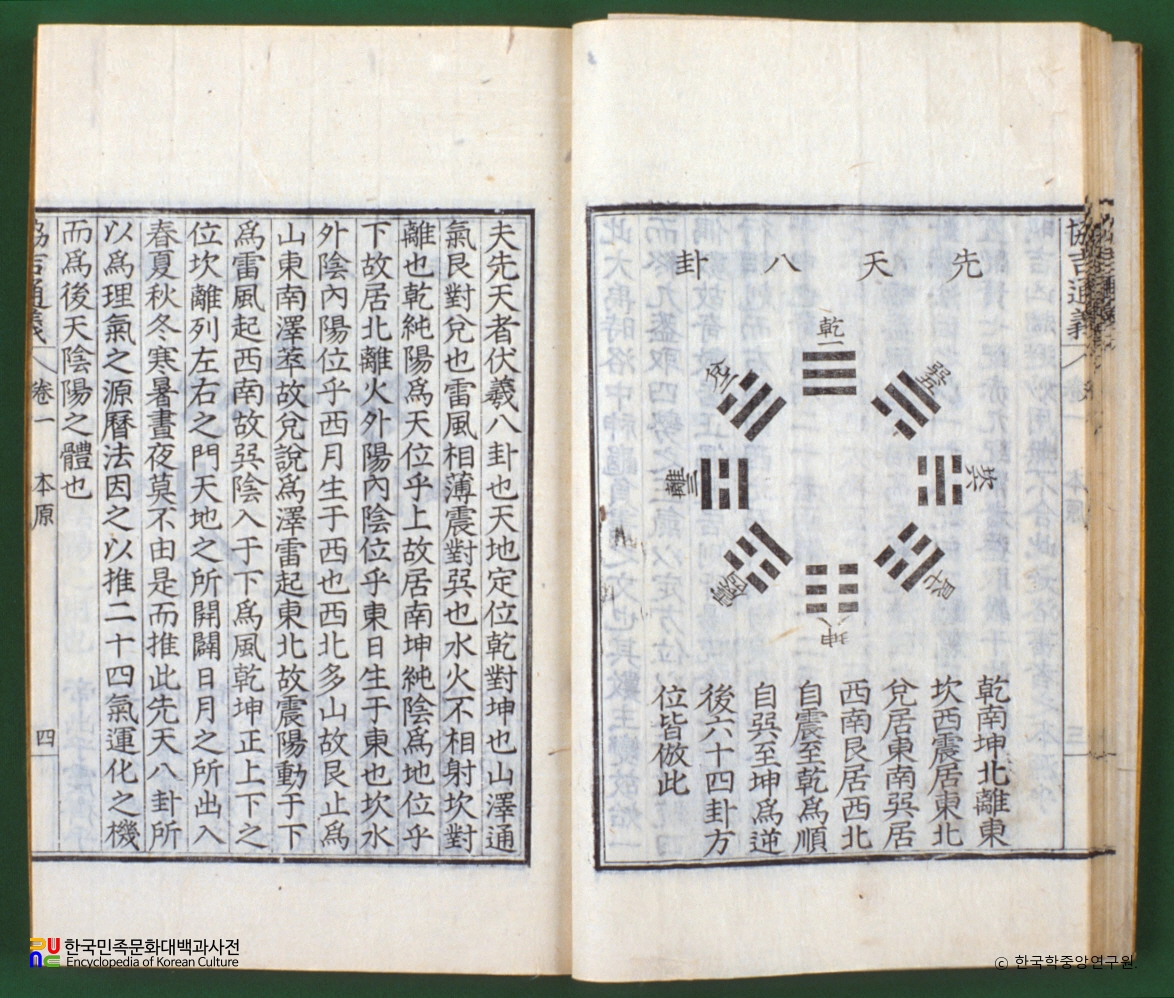 協吉通義
先天八卦
乾一
兌
離三
震
巽
坎
艮
坤
乾南坤北離東
坎西震居東北
兌居東南巽居
西南艮居西北
自震至乾爲順
自巽至坤爲逆
後六十四卦方
位皆倣此
夫先天者伏羲八卦也天地定位乾對坤也山澤通
氣艮對兌也雷風相薄震對巽也水火不相射坎對
離也乾純陽爲天位乎上故居南坤純陰爲地位乎
下故居北離火外陽內陰位乎東日生于東也坎水
外陰內陽位乎西月生于西也西北多山故艮止爲
山東南澤萃故兌說爲澤雷起東北故震陽動于下
爲雷風起西南故巽陰入于下爲風乾坤正上下之
位坎離列左右之門天地之所開闢日月之所出入
春夏秋冬寒暑晝夜莫不由是而推此先天八卦所
以爲理氣之源曆法因之以推二十四氣運化之機
而爲後天陰陽之體也
協吉通義 卷一 本原 四
한국민족문화대백과사전
Encyclopedia of Korean Culture
© 한국학중앙연구원.